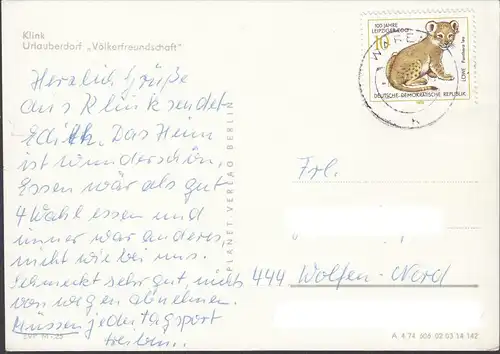 Klink
Urlauberdorf „Völkerfreundschaft"
100 JAHRE
LEIPZIGER ZOO
10
LÖWE Panthera leo
DEUTSCHE DEMOKRATISCHE REPUBLIK
WARE
Herzlich Grüße
aus Klink sendet
Edith. Das Heim
ist wunderschön,
Essen wär als gut
4 Wahl essen und
immer war anderes,
nicht wie bei uns.
Schmeckt sehr gut, nichts
von wegen abnehmen.
Müssen jeden tag sport
treiben.
PLANET-VERLAG BERLIN
Frl.
444 Wolfen-Nord
A 4 74 506 02 03 14 142